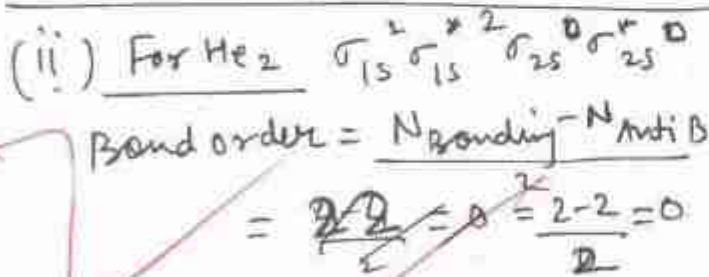 (ii) For He₂ σ1s² σ*1s² σ2s⁰ σ*2s⁰
Bond order = N Bonding - N Anti B
2
= 2-2 / 2 = 0 = 2-2 / 2 = 0